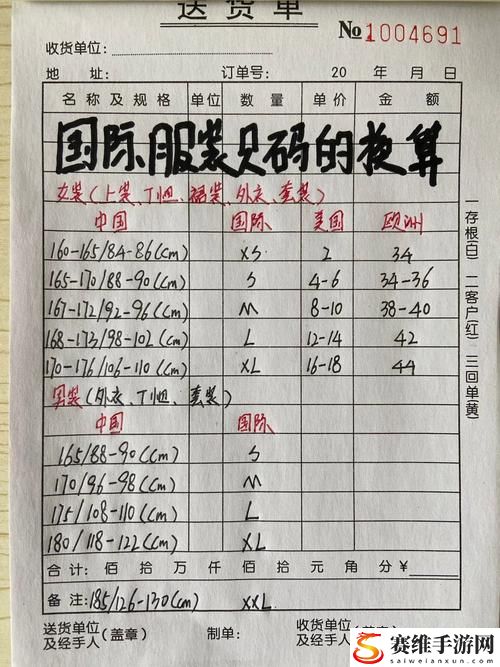 送货单
№1004691
收货单位:
地 址: 订单号: 20 年 月 日
名称及规格 单位 数量 单价 金额
国际服装尺码的换算
女装(上装、T恤、裙装、外衣、套装)
中国 国际 美国 欧洲
160-165/84-86(cm) XS 2 34
165-170/88-90(cm) S 4-6 34-36
167-172/92-96(cm) M 8-10 38-40
168-173/98-102(cm) L 12-14 42
170-176/106-110(cm) XL 16-18 44
男装(外衣、T恤、套装)
中国 国际
165/88-90(cm) S
170/96-98(cm) M
175/108-110(cm) L
180/118-122(cm) XL
合计: 佰 拾 万 仟 佰 拾 元 角 分¥
备注:185/126-130(cm) XXL
送货单位及经手人(盖章) 制单: 收货单位及经手人
一存根(白) 二客户(红) 三回单(黄)
赛维手游网
www.saiweilanxun.com